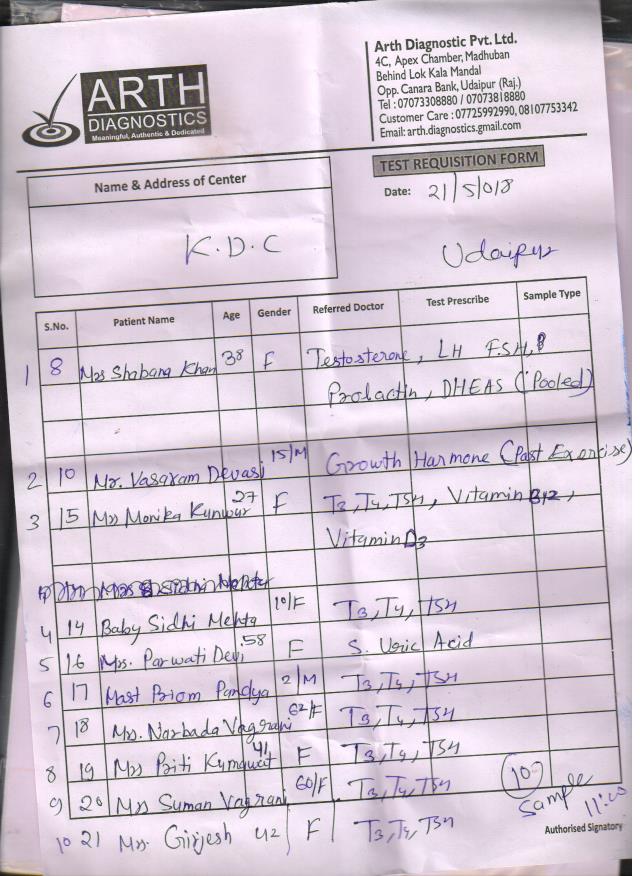 ARTH
DIAGNOSTICS
Meaningful, Authentic & Dedicated
Arth Diagnostic Pvt. Ltd.
4C, Apex Chamber, Madhuban
Behind Lok Kala Mandal
Opp. Canara Bank, Udaipur (Raj.)
Tel : 07073308880 / 07073818880
Customer Care : 07725992990, 08107753342
Email: arth.diagnostics.gmail.com
TEST REQUISITION FORM
Name & Address of Center
Date: 21/5/018
K.D.C
Udaipur
S.No. Patient Name Age Gender Referred Doctor Test Prescribe Sample Type
1 8 Mrs Shabana Khan 38 F Testosterone, LH F.S.H,
Prolactin, DHEAS (Pooled)
2 10 Mr. Vasaram Devasi 15/M Growth Harmone (Past Exercise)
3 15 Mrs Monika Kunwar 27 F T3, T4, TSH, Vitamin B12,
Vitamin D3
4 14 Baby Sidhi Mehta 10/F T3, T4, TSH
5 16 Mrs. Parwati Devi 58 F S. Uric Acid
6 17 Mast Priom Pandya 2/M T3, T4, TSH
7 18 Mrs. Narbada Vagrani 62/F T3, T4, TSH
8 19 Mrs Priti Kumawat 41 F T3, T4, TSH
9 20 Mrs Suman Vagrani 60/F T3, T4, TSH
10 21 Mrs. Girjesh 42 F T3, T4, TSH
10 Sample 11:00
Authorised Signatory